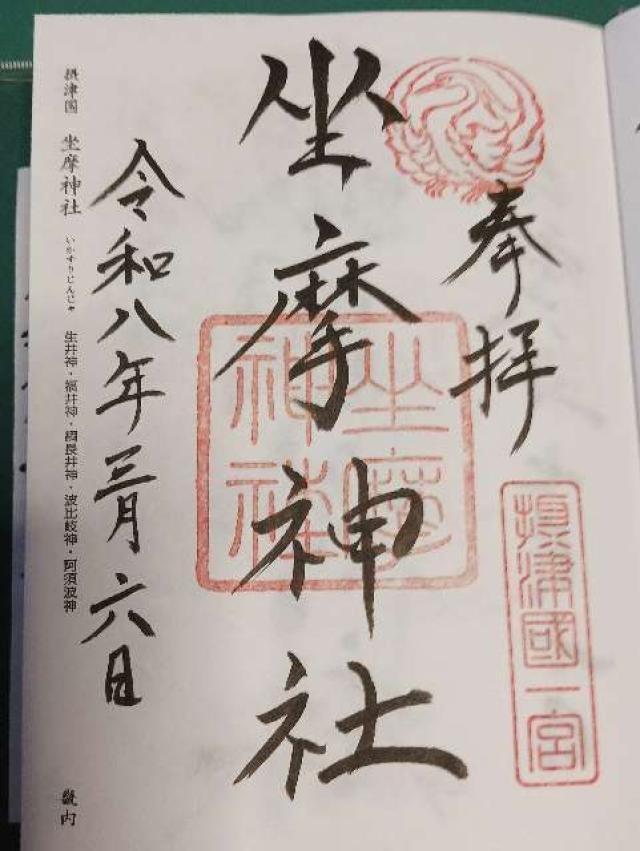 奉拝
摂津國一宮
坐摩神社
坐摩神社
令和八年三月六日
摂津国 坐摩神社 いかすりじんじゃ 生井神・福井神・綱長井神・波比岐神・阿須波神
畿内